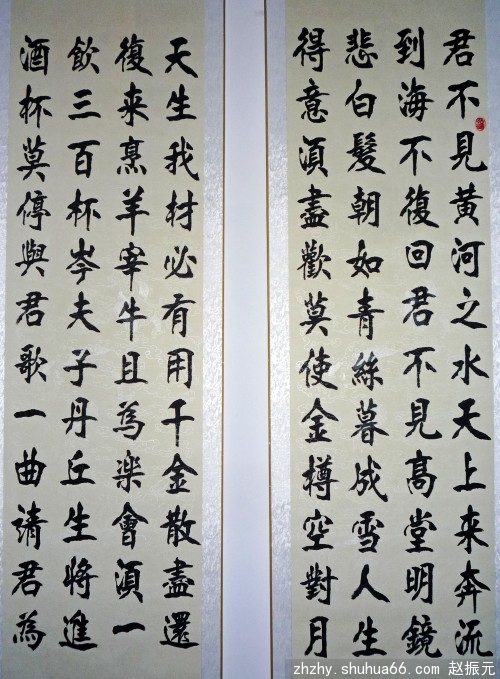 君不見黃河之水天上来奔流
到海不復回君不見高堂明鏡
悲白髮朝如青絲暮成雪人生
得意湏盡歡莫使金樽空對月
天生我材必有用千金散盡還
復来烹羊宰牛且為楽會湏一
飲三百杯岑夫子丹丘生將進
酒杯莫停與君歌一曲請君為
zhzhy.shuhua66.com 赵振元